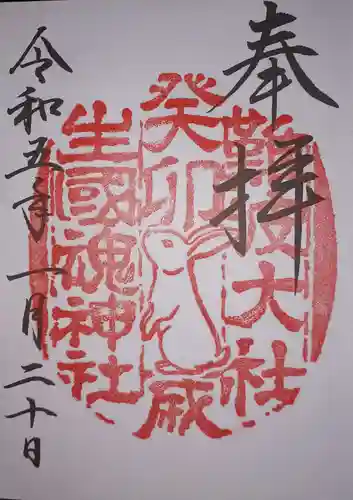 奉拝
難波大社
癸卯歳
生國魂神社
令和五年一月二十日